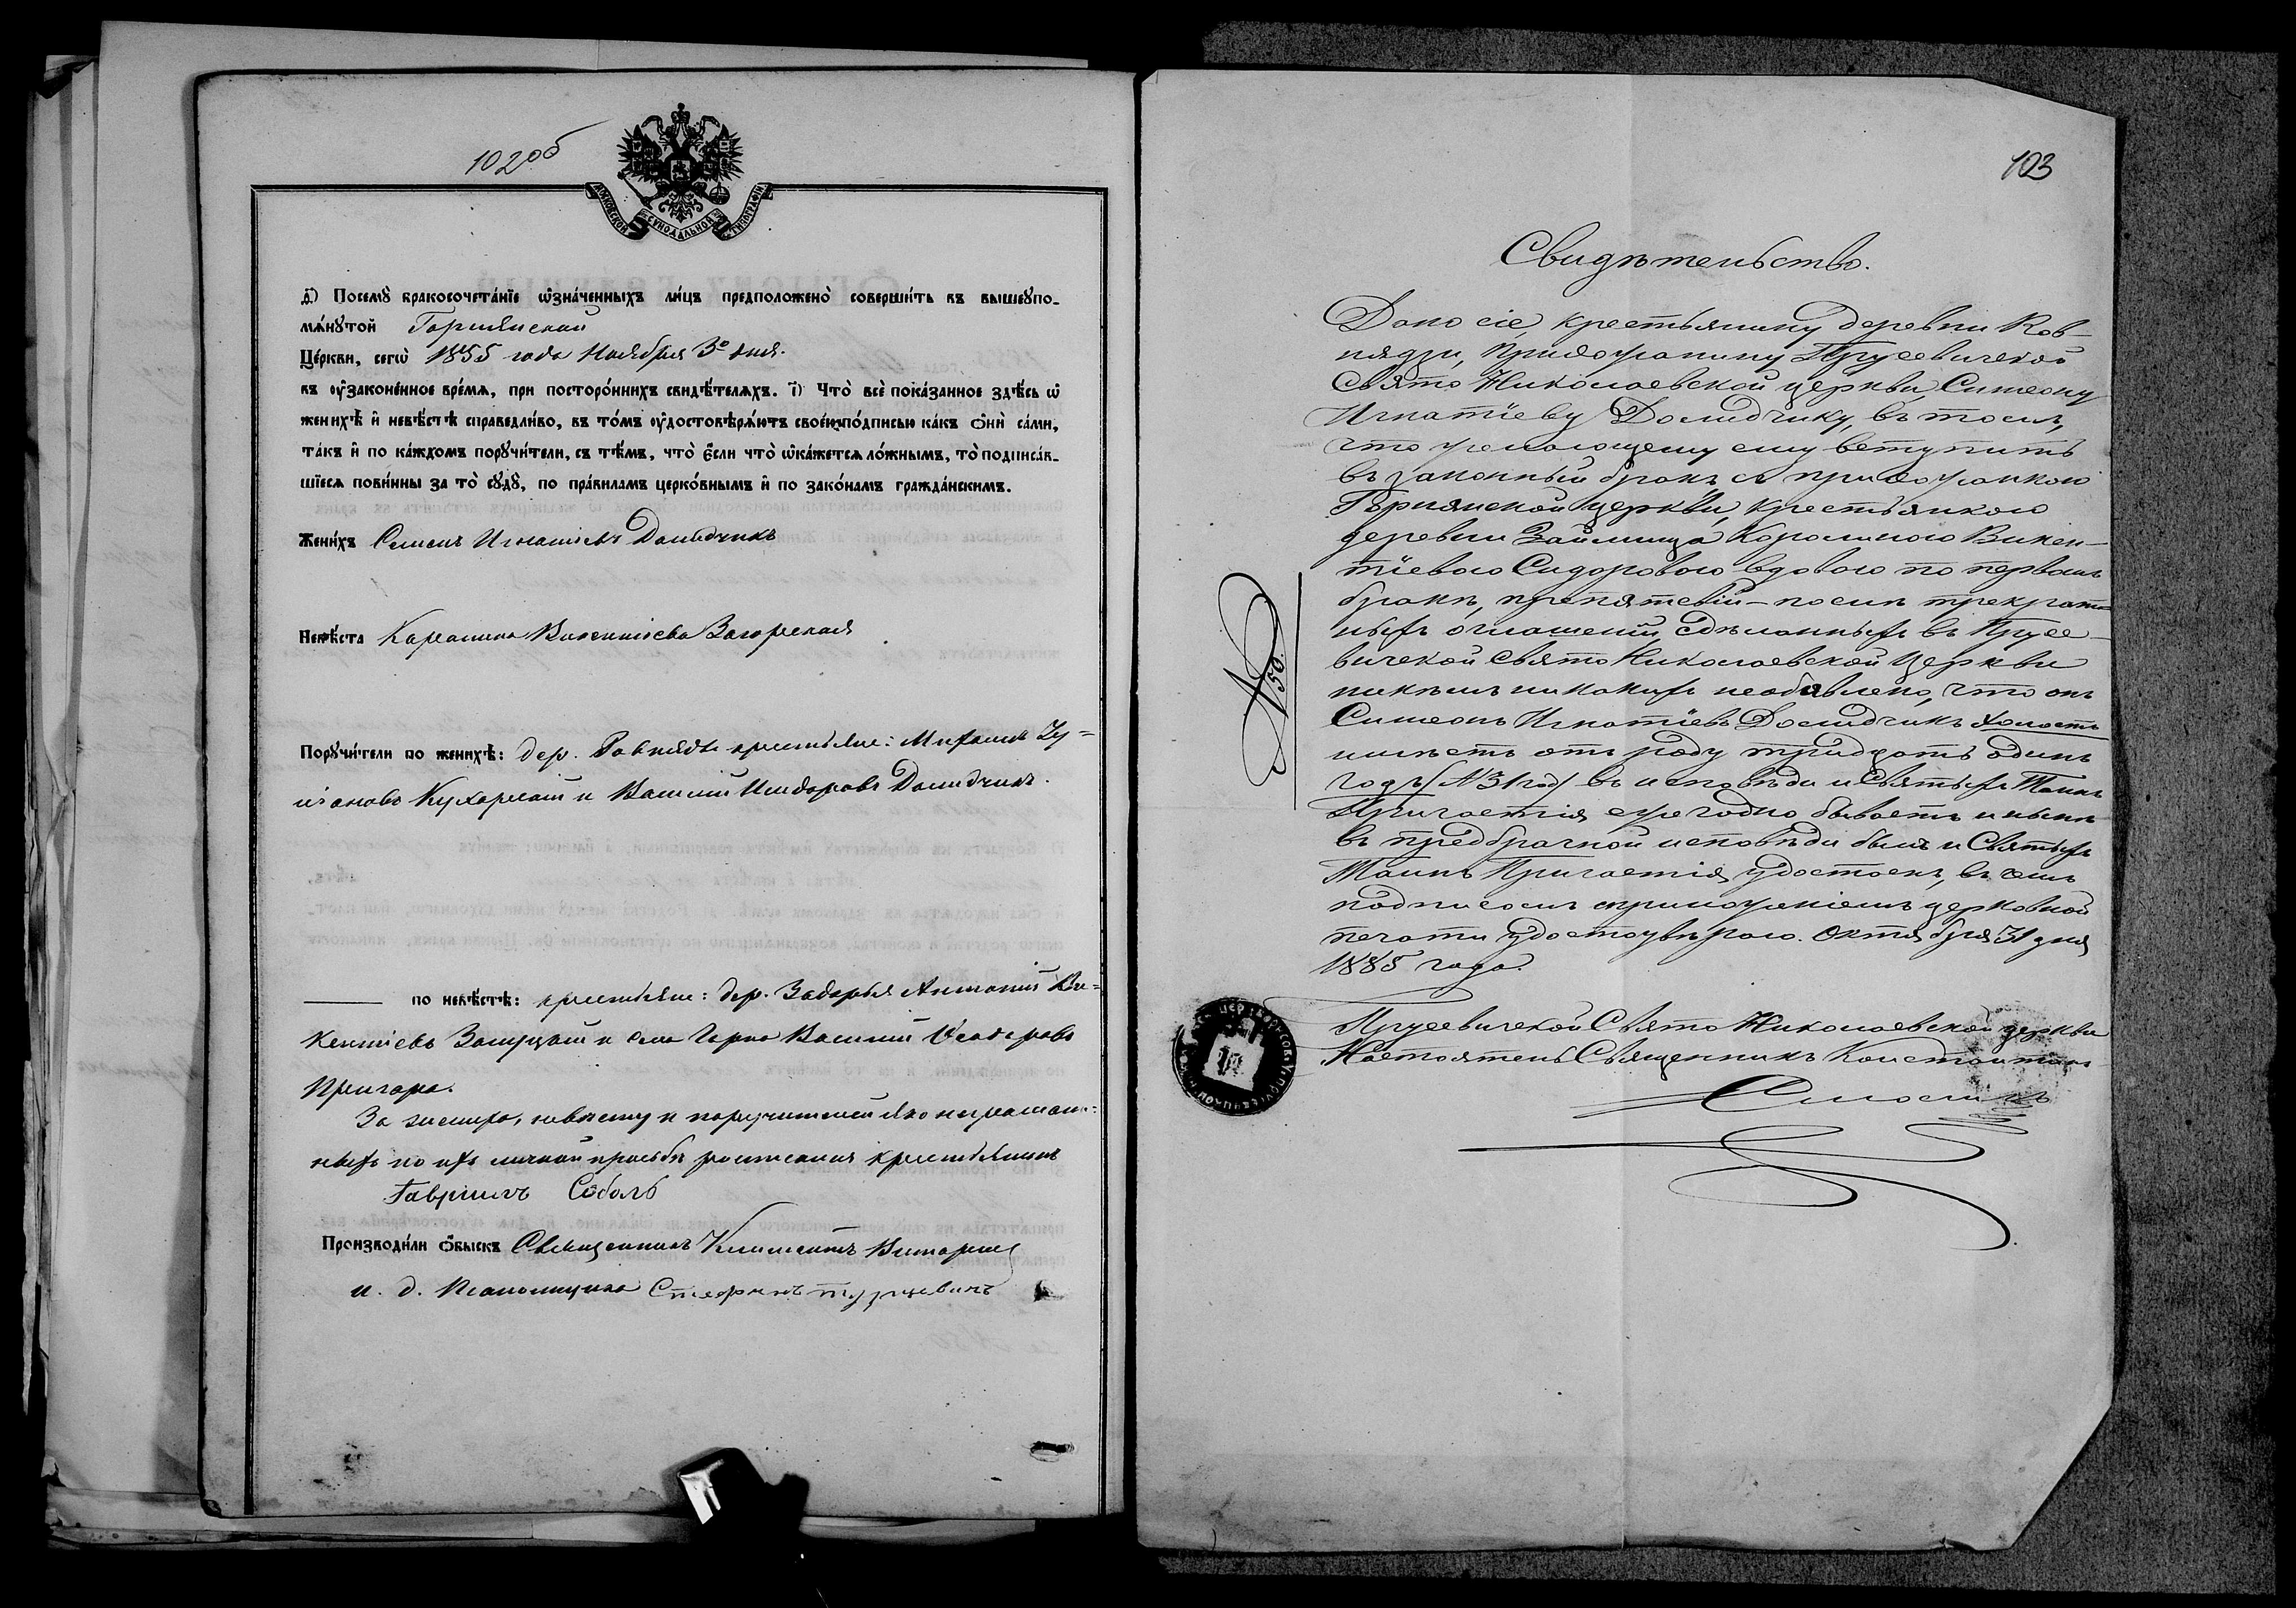 102об
МОСКОВСКОЙ СѴНОДАЛЬНОЙ ТИПОГРАФІИ
д҃) Посемꙋ̀ бракосочета́нїе ѡ҆зна́ченныхъ ли́цъ предположено̀ соверши́ть въ вышеꙋпо-
мѧ́нꙋтой Горнянской
Це́ркви, сегѡ̀ 1885 года Ноября 3го дня.
въ ᲂу҆зако́не́нное вре́мѧ, при посторо́ннихъ свидѣ́телѧхъ. і҃) Что̀ всѐ пока́занное здѣ́сь ѡ҆
женихѣ̀ и҆ невѣ́стѣ справедли́во, въ то́мъ ᲂу҆достовѣрѧ́ютъ свое́ю по́дписью ка́къ ѻ҆нѝ са́ми,
та́къ и҆ по ка́ждомъ порꙋчи́тели, съ тѣ́мъ, что̀ є҆́сли что̀ ѡ҆ка́жетсѧ ло́жнымъ, то̀ подписа́в-
шїесѧ пови́нны за то̀ сꙋдꙋ̀, по пра́виламъ церко́внымъ и҆ по зако́намъ гражда́нскимъ.
Жени́хъ Семенъ Игнатіевъ Домидчикъ
Невѣ́ста Каролина Викентіева Загорская
Порꙋчи́тели по женихѣ̀: дер. крестьяне:
Кухарскій и Василій Исидоровъ Домидчикъ.
по невѣ́стѣ: крестьяне: дер. Антоній Ви=
кентіевъ и села Горна Василій Ѳеодоровъ
За жениха, невѣсту и поручителей яко неграмот=
ныхъ по ихъ личной просьбѣ росписался крестьянинъ
Гавріилъ Соболь
Производи́ли ѻ҆́быскъ Священникъ Климентъ
и. д. Псаломщика Стефанъ
103
Свидѣтельство.
Дано сіе крестьянину деревни Ков-
нядзи, прихожанину Прусевичской
Свято Николаевской церкви, Симеону
Игнатіеву Домидчику, въ томъ,
что желающему ему вступить
въ законный бракъ съ прихожанкою
Горнянской церкви, крестьянкою
деревни Каролиною Викен-
тіевою Сидоровою вдовою по первомъ
бракѣ, препятствій – послѣ трекрат-
ныхъ оглашеній, сдѣланныхъ въ Прусе-
вичской Свято Николаевской Церкви
никѣмъ никакихъ необъявлено, что онъ
Симеонъ Игнатіевъ Домидчикъ холостъ
имѣетъ отъ роду тридцать одинъ
годъ (№ 31 год) въ исповѣди и Святыхъ Таинъ
Причастія ежегодно бываетъ и нынѣ
въ предбрачной исповѣди былъ и Святыхъ
Таинъ Причастія удостоенъ, въ чемъ
подписомъ съ приложеніемъ церковной
печати удостовѣряю. Октября 31 дня
1885 года.
№ 50.
Прусевичской Свято Николаевской церкви
Настоятель Священникъ Константинъ